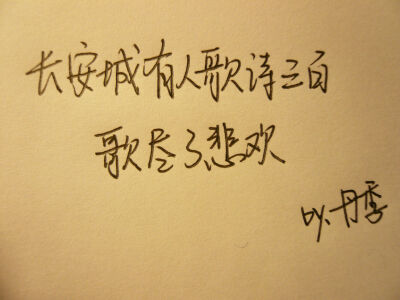 长安城有人歌诗三百
歌尽了悲欢
by.丹季